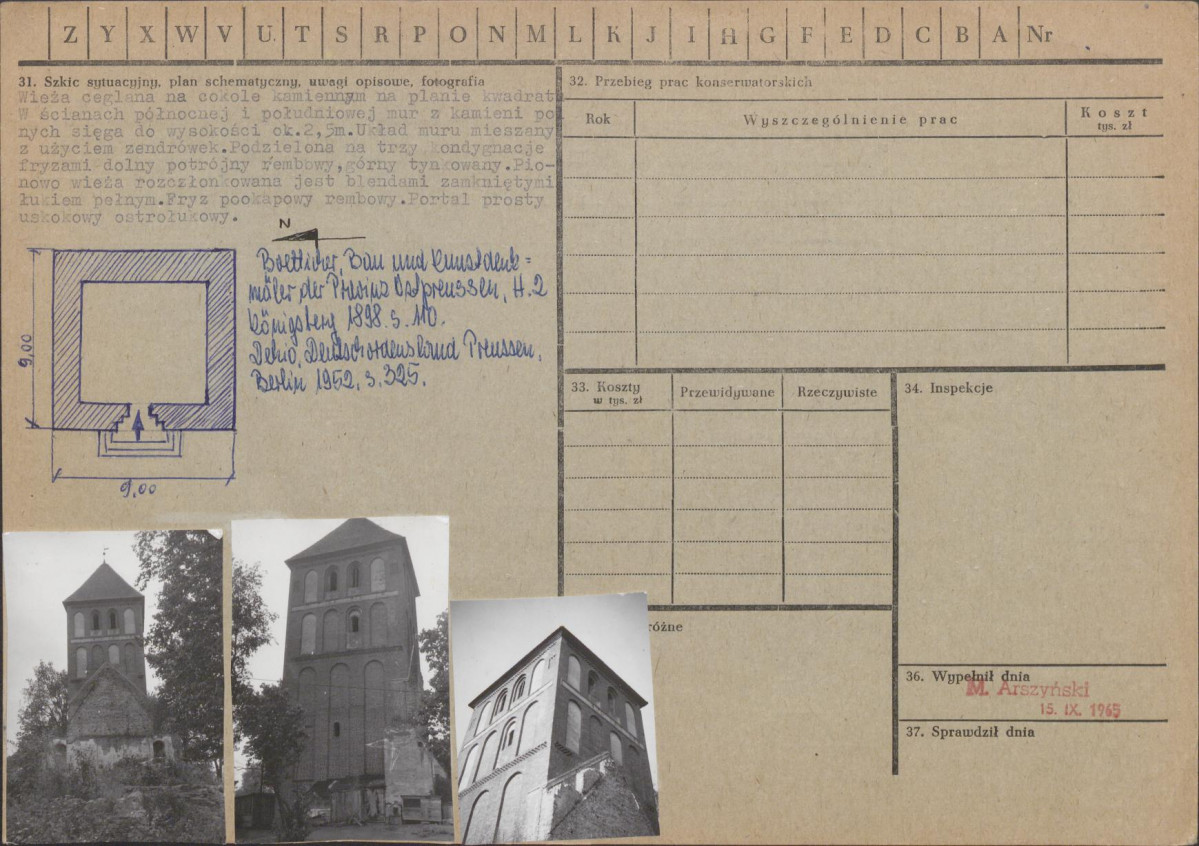 Z Y X W V U T S R P O N M L K J I H G F E D C B A Nr
31. Szkic sytuacyjny, plan schematyczny, uwagi opisowe, fotografia
Wieża ceglana na cokole kamiennym na planie kwadrat
W ścianach północnej i południowej mur z kamieni pol
nych sięga do wysokości ok.2,5m.Układ muru mieszany
z użyciem zendrówek.Podzielona na trzy kondygnacje
fryzami dolny potrójny rembowy,górny tynkowany.Pio-
nowo wieża rozczłonkowana jest blendami zamkniętymi
łukiem pełnym.Fryz pookapowy rembowy.Portal prosty
uskokowy ostrołukowy.
N
Boetticher, Bau und Kunstdenk=
mäler der Provinz Ostpreussen, H.2
Königsberg 1898. s. 110.
Dehio, Deutschordensland Preussen,
Berlin 1952, s. 325.
9,00
9,00
32. Przebieg prac konserwatorskich
Rok
Wyszczególnienie prac
Koszt
tys. zł
33. Koszty
w tys. zł
Przewidywane
Rzeczywiste
34. Inspekcje
różne
36. Wypełnił dnia
M. Arszyński
15. IX. 1965
37. Sprawdził dnia